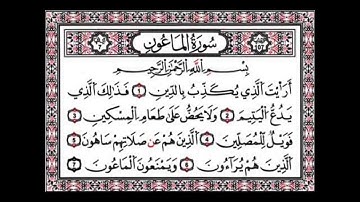 سُورَةُ الْمَاعُونِ
بِسْمِ اللَّهِ الرَّحْمَٰنِ الرَّحِيمِ
أَرَأَيْتَ الَّذِي يُكَذِّبُ بِالدِّينِ ١ فَذَٰلِكَ الَّذِي
يَدُعُّ الْيَتِيمَ ٢ وَلَا يَحُضُّ عَلَىٰ طَعَامِ الْمِسْكِينِ ٣
فَوَيْلٌ لِلْمُصَلِّينَ ٤ الَّذِينَ هُمْ عَنْ صَلَاتِهِمْ سَاهُونَ ٥
الَّذِينَ هُمْ يُرَاءُونَ ٦ وَيَمْنَعُونَ الْمَاعُونَ ٧